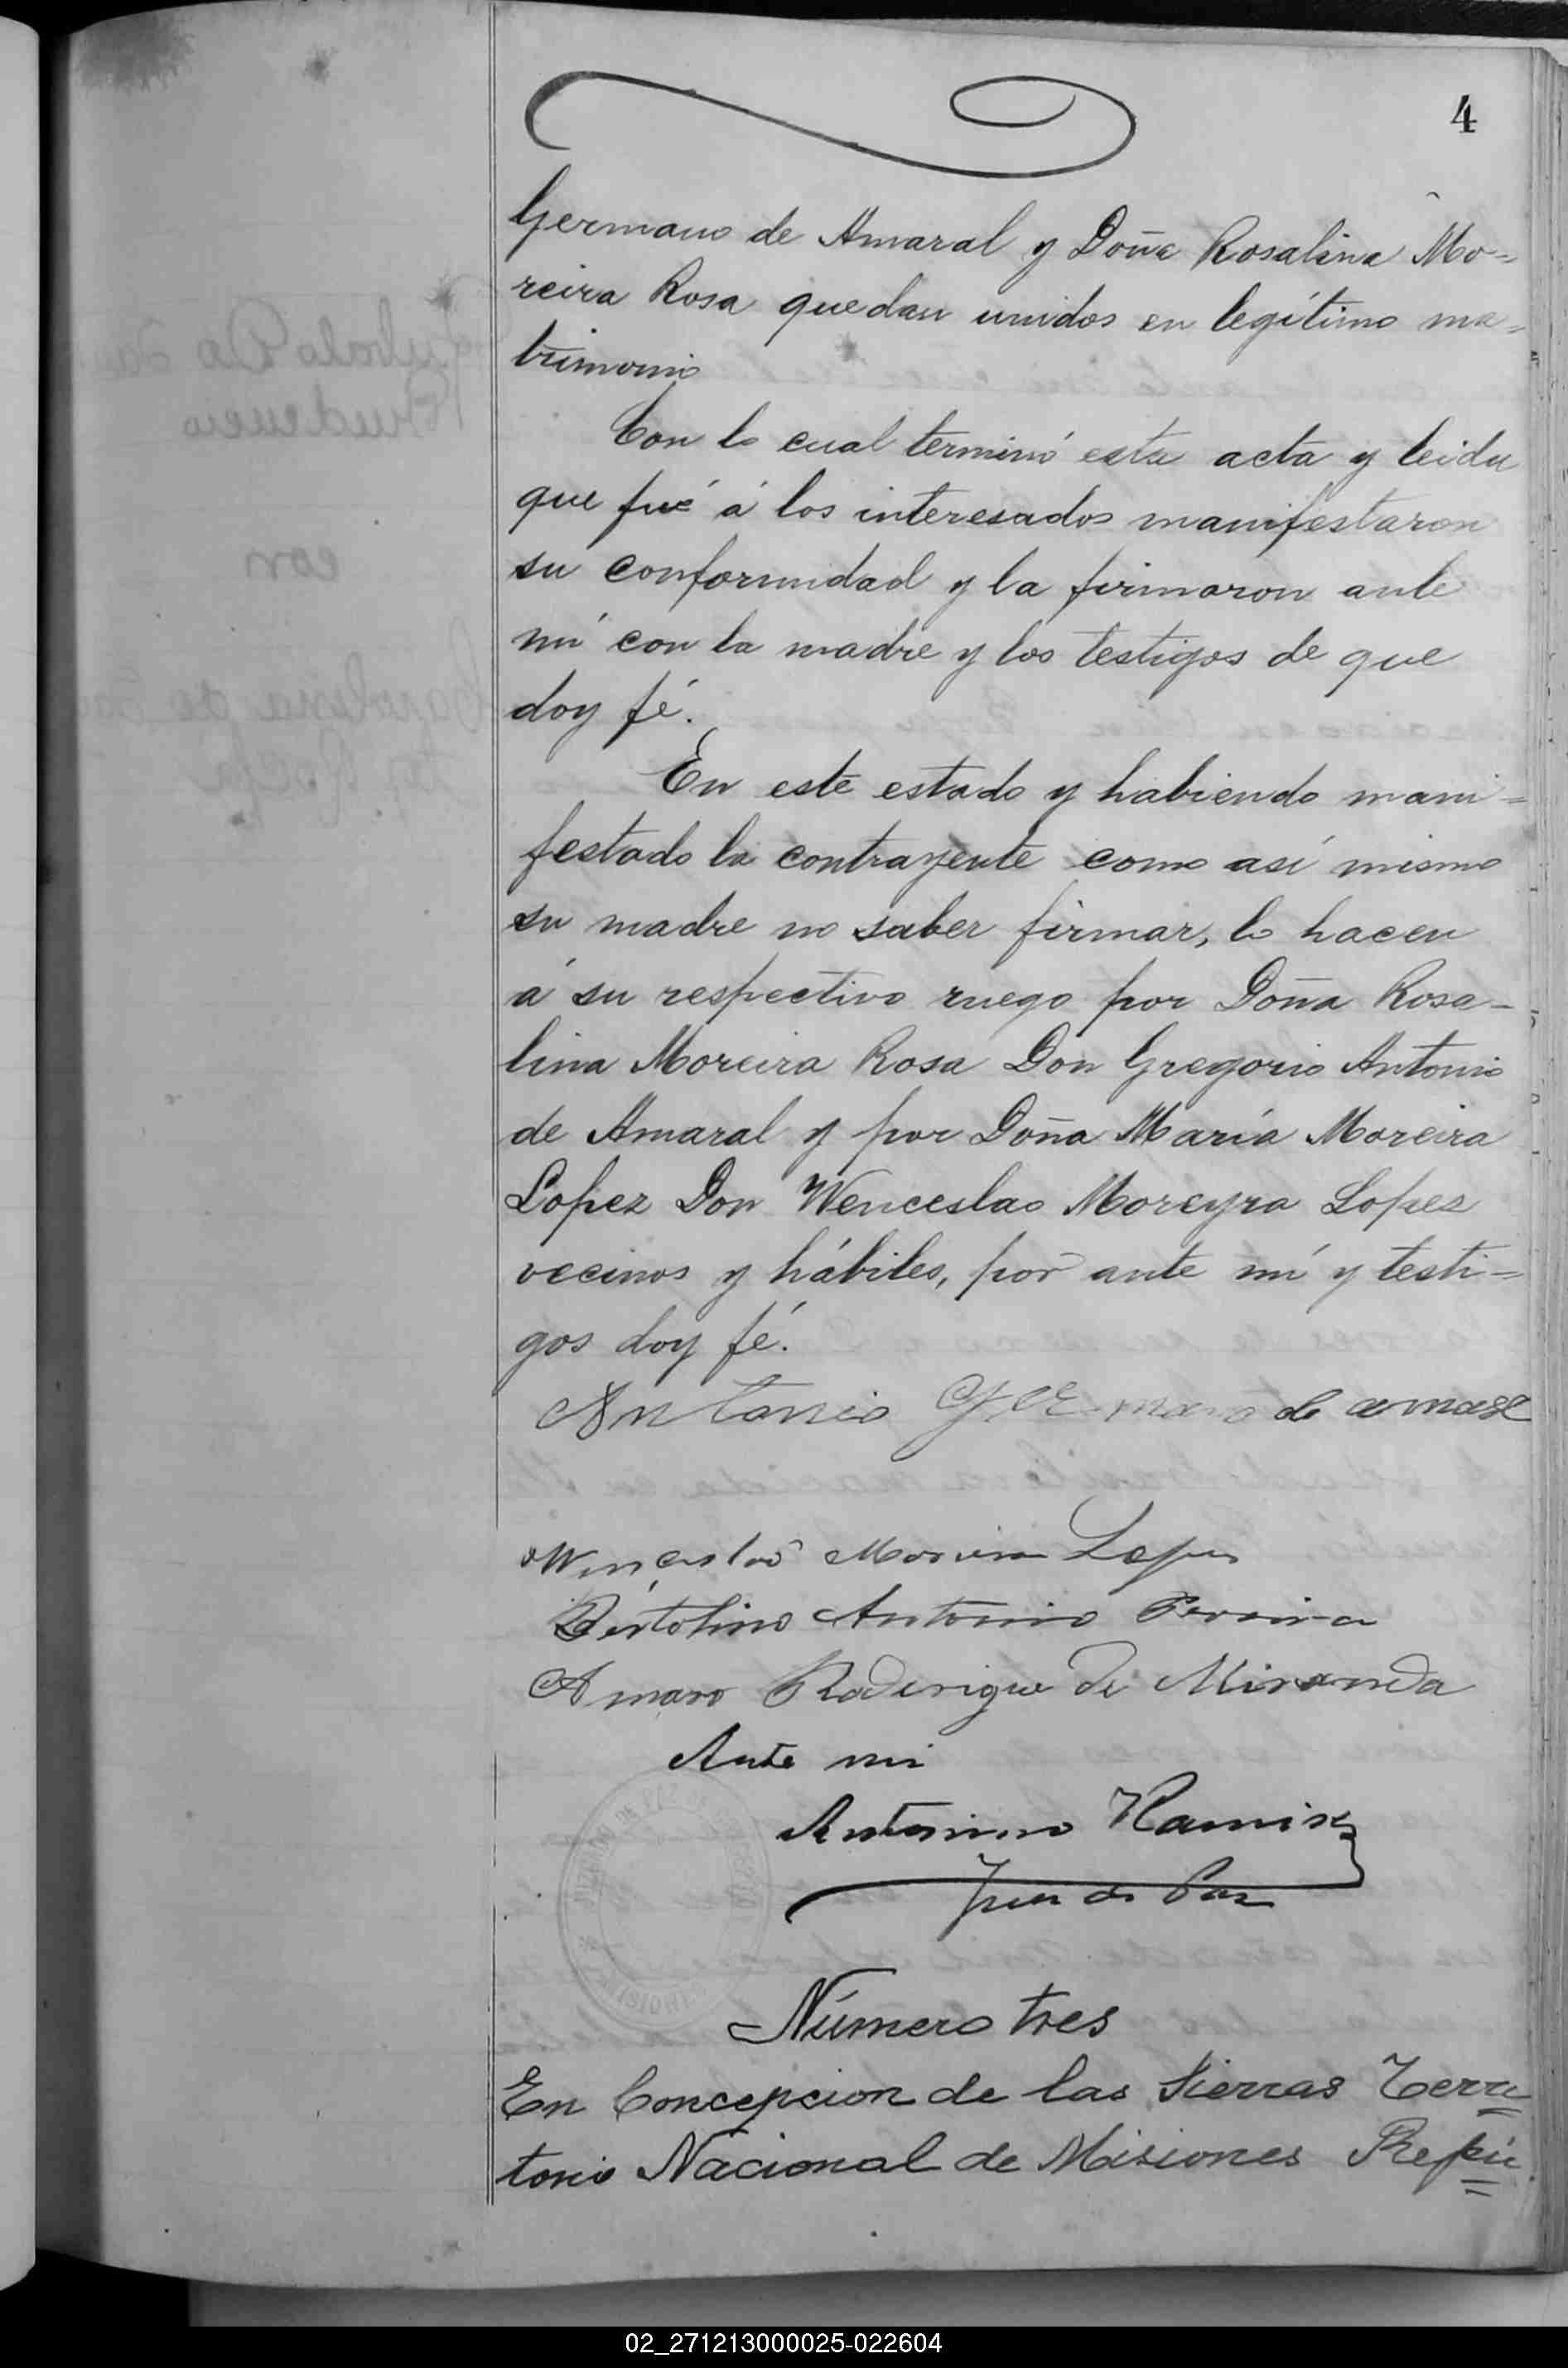 4
Germano de Amaral y Doña Rosalina Mo=
reira Rosa quedan unidos en legítimo ma=
trimonio
Con lo cual terminó esta acta y leida
que fué á los interesados manifestaron
su conformidad y la firmaron ante
mí con la madre y los testigos de que
doy fé.
En este estado y habiendo mani=
festado la contrayente como así mismo
su madre no saber firmar, lo hacen
á su respectivo ruego por Doña Rosa-
lina Moreira Rosa Don Gregorio Antonio
de Amaral y por Doña María Moreira
Lopez Don Wenceslao Moreyra Lopes
vecinos y hábiles, por ante mí y testi=
gos doy fé.
Antonio Germano de amaral
Moreira Lopes
Bertolino Antonio Pereira
Amaro Roderigue de Miranda
Ante mi
Antonino Ramirez
Juez de Paz
MISIONES
Número tres
En Concepcion de las Sierras Terri
torio Nacional de Misiones Repú
02_271213000025-022604